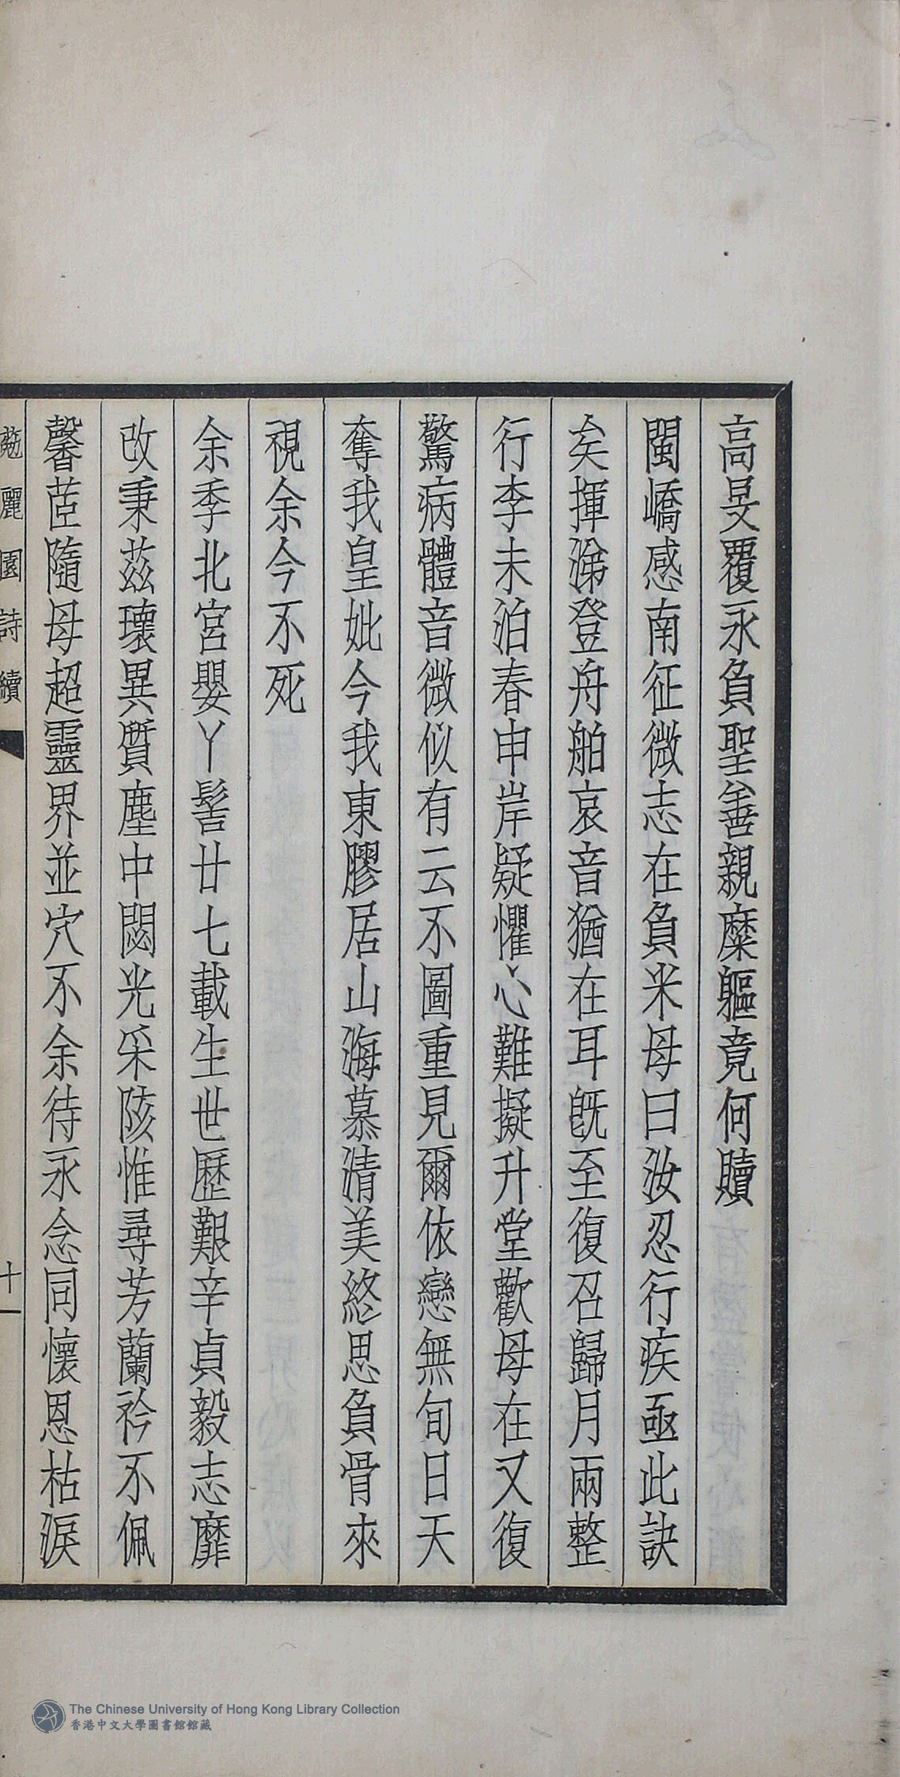 高旻覆永負聖善親糜軀竟何贖
閩嶠感南征微志在負米母曰汝忍行疾亟此訣
矣揮涕登舟舶哀音猶在耳旣至復召歸月兩整
行李未泊春申岸疑懼心難擬升堂歡母在又復
驚病體音微似有云不圖重見爾依戀無旬日天
奪我皇妣今我東膠居山海慕清美終思負骨來
視余今不死
余季北宮嬰丫髻廿七載生世歷艱辛貞毅志靡
改秉茲瓌異質塵中閟光采陔惟尋芳蘭衿不佩
馨茝隨母超靈界並穴不余待永念同懷恩枯淚
麗園詩續
十
The Chinese University of Hong Kong Library Collection
香港中文大學圖書館館藏